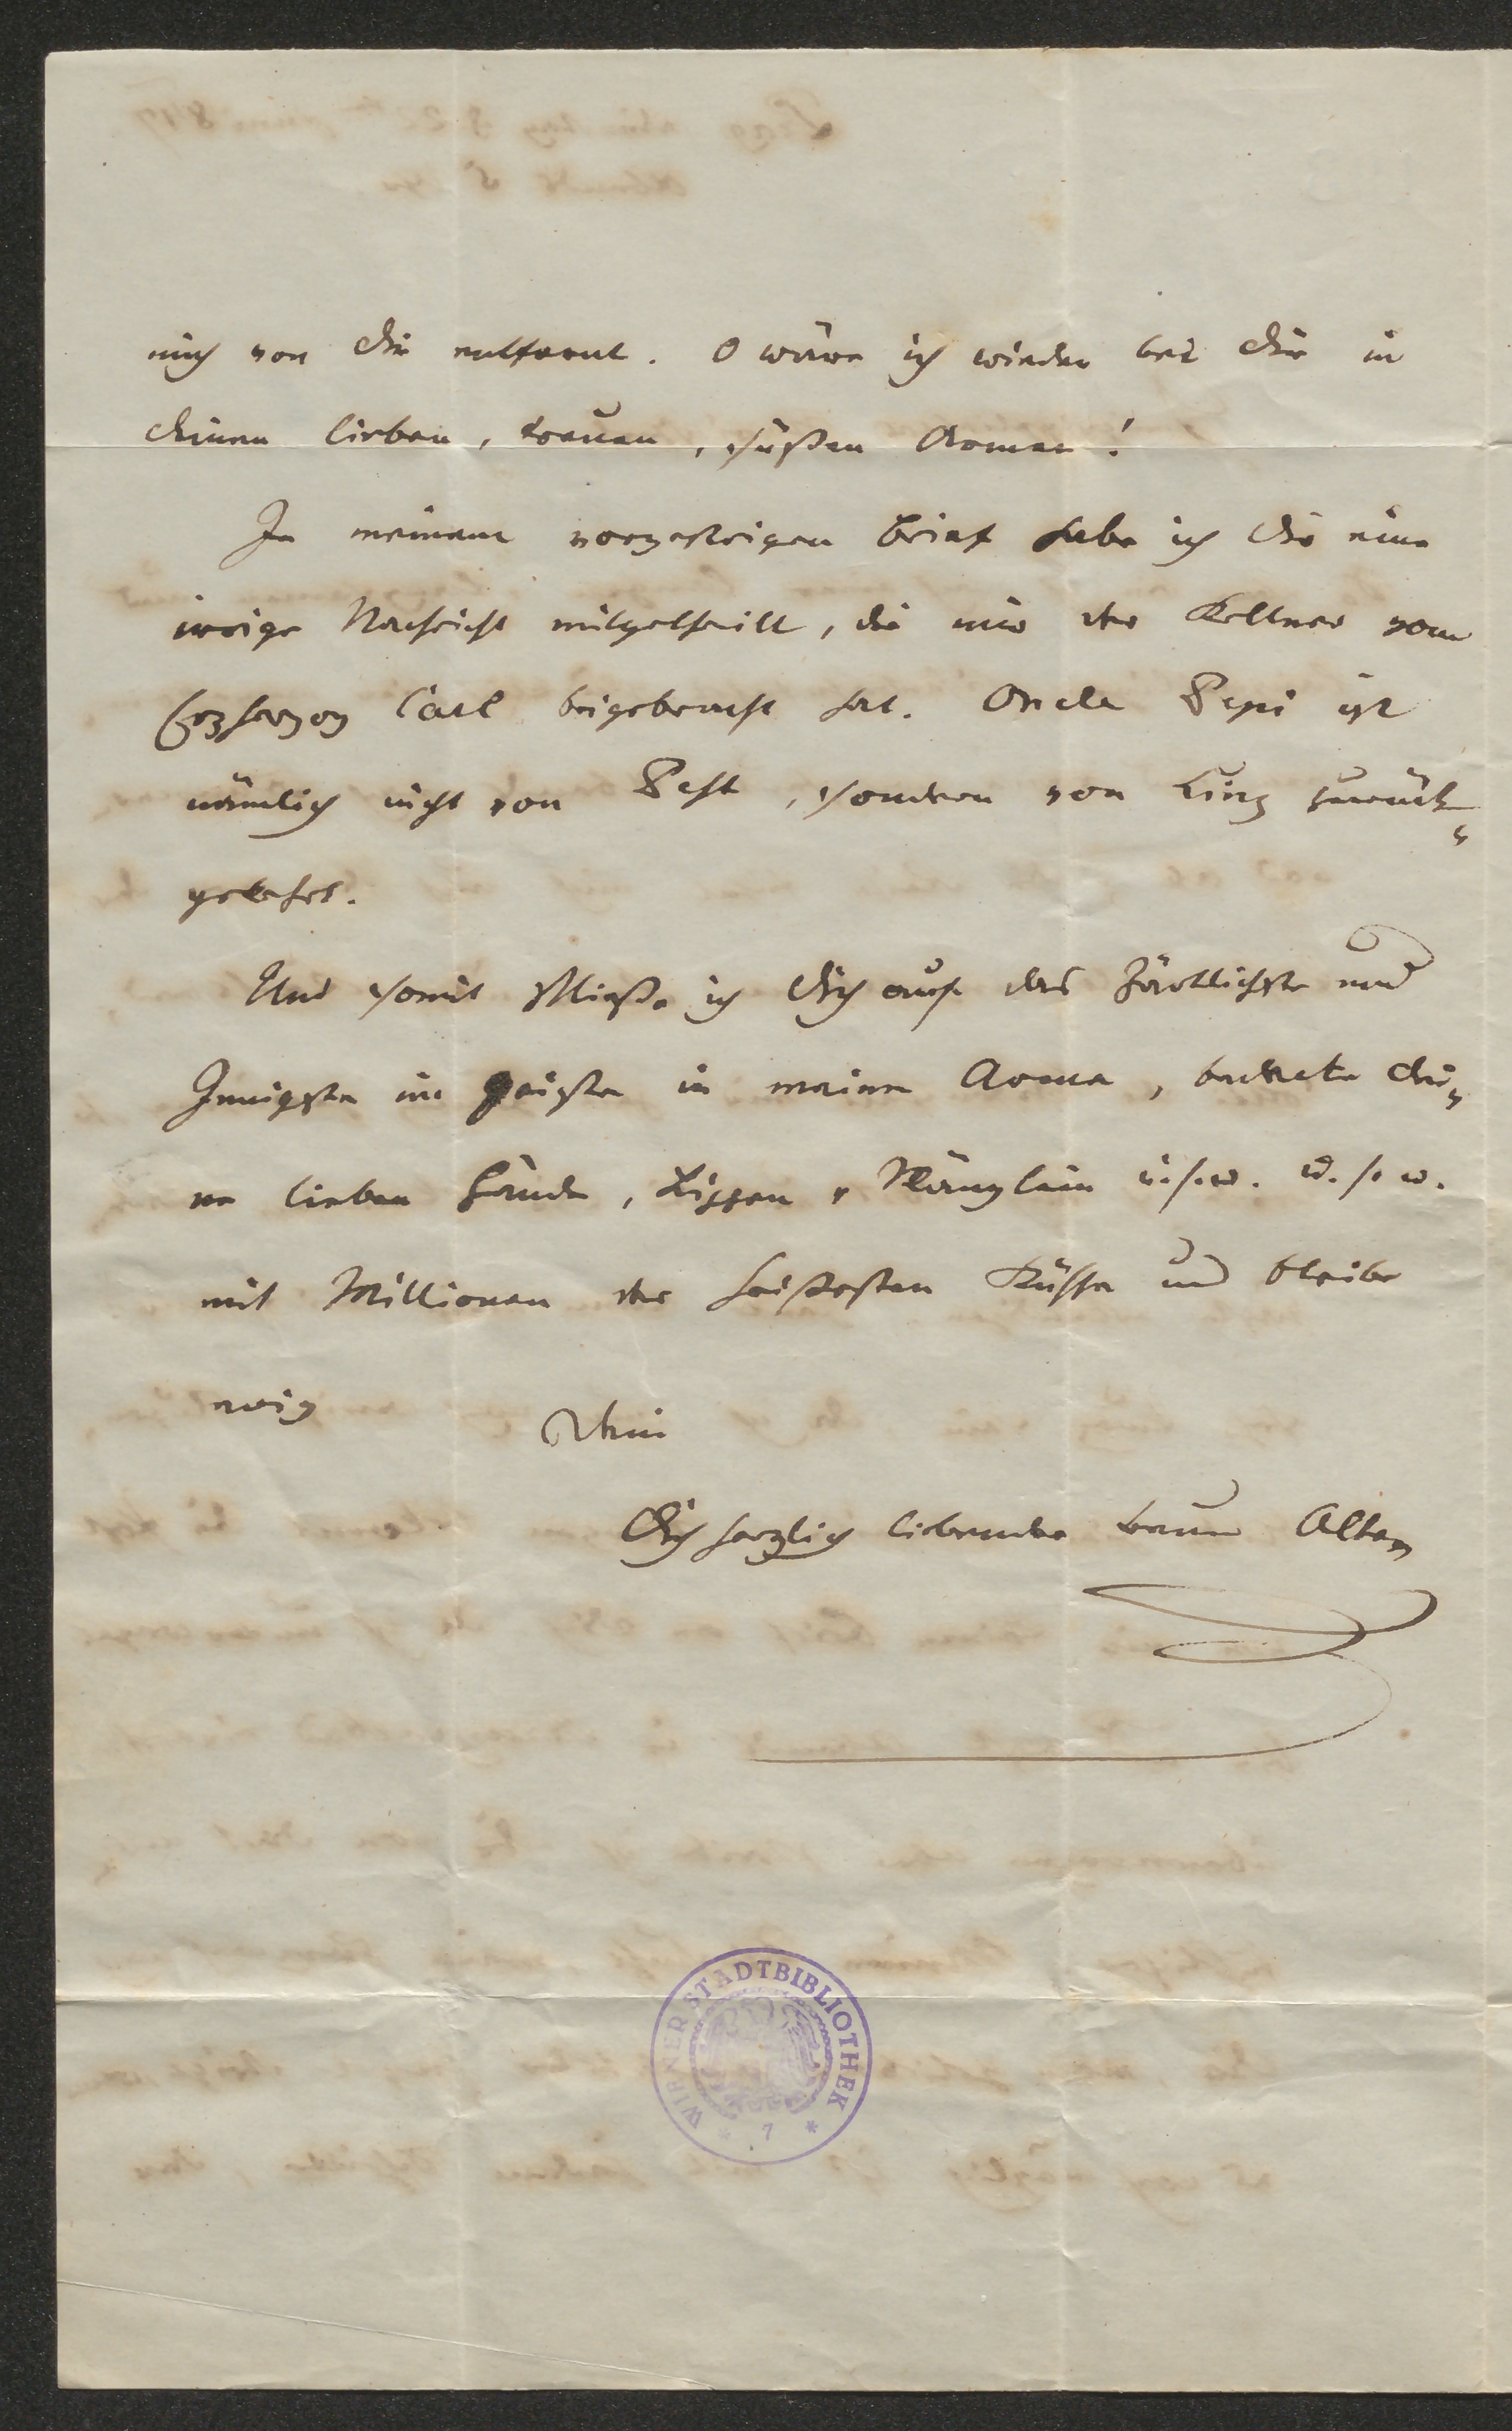 mich von Dir entfernt. O wäre ich wieder bei Dir in
Deinen lieben, treuen, süßen Armen!
In meinem vorgestrigen Brief habe ich Dir eine
irrige Nachricht mitgetheilt, die mir der Kellner vom
Erzherzog Carl beigebracht hat. Oncle Pepi ist
nämlich nicht von Pest, sondern von Linz zurück-
gekehrt.
Und somit schließe ich Dich auf das Zärtlichste und
Innigste im Geiste in meine Arme, bedecke Dei-
ne lieben Hände, Lippen, Wänglein u. s. w. u. s. w.
mit Millionen der heißesten Küsse und bleibe
ewig
Dein
Dich herzlich liebender treuer Alter
WIENER STADTBIBLIOTHEK
* 7 *